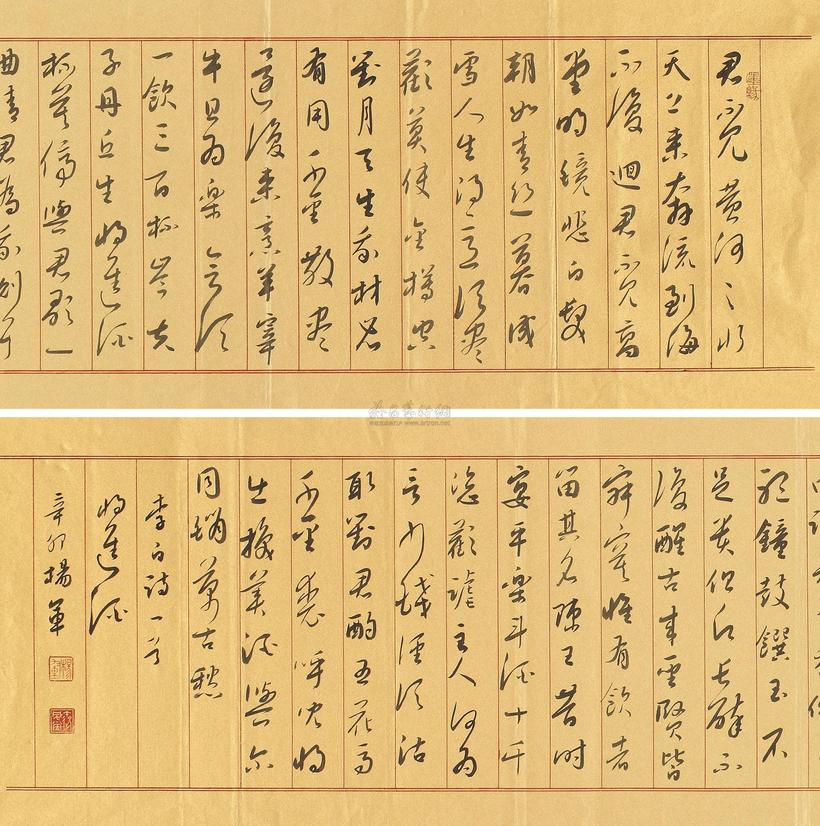 君不見黃河之水
天上来奔流到海
不復迴君不見高
堂明鏡悲白髮
朝如青絲暮成
雪人生得意須盡
歡莫使金樽空
對月天生我材必
有用千金散盡
還復来烹羊宰
牛且為樂會須
一飲三百杯岑夫
子丹丘生將進酒
杯莫停與君歌一
曲請君為我側耳
聽鐘鼓饌玉不
足貴但願長醉不
復醒古来聖賢皆
寂寞惟有飲者
留其名陳王昔時
宴平樂斗酒十千
恣歡謔主人何為
言少錢徑須沽
取對君酌五花馬
千金裘呼兒將
出換美酒與爾
同銷萬古愁
李白詩一首
將進酒
辛卯楊軍
www.artron.net